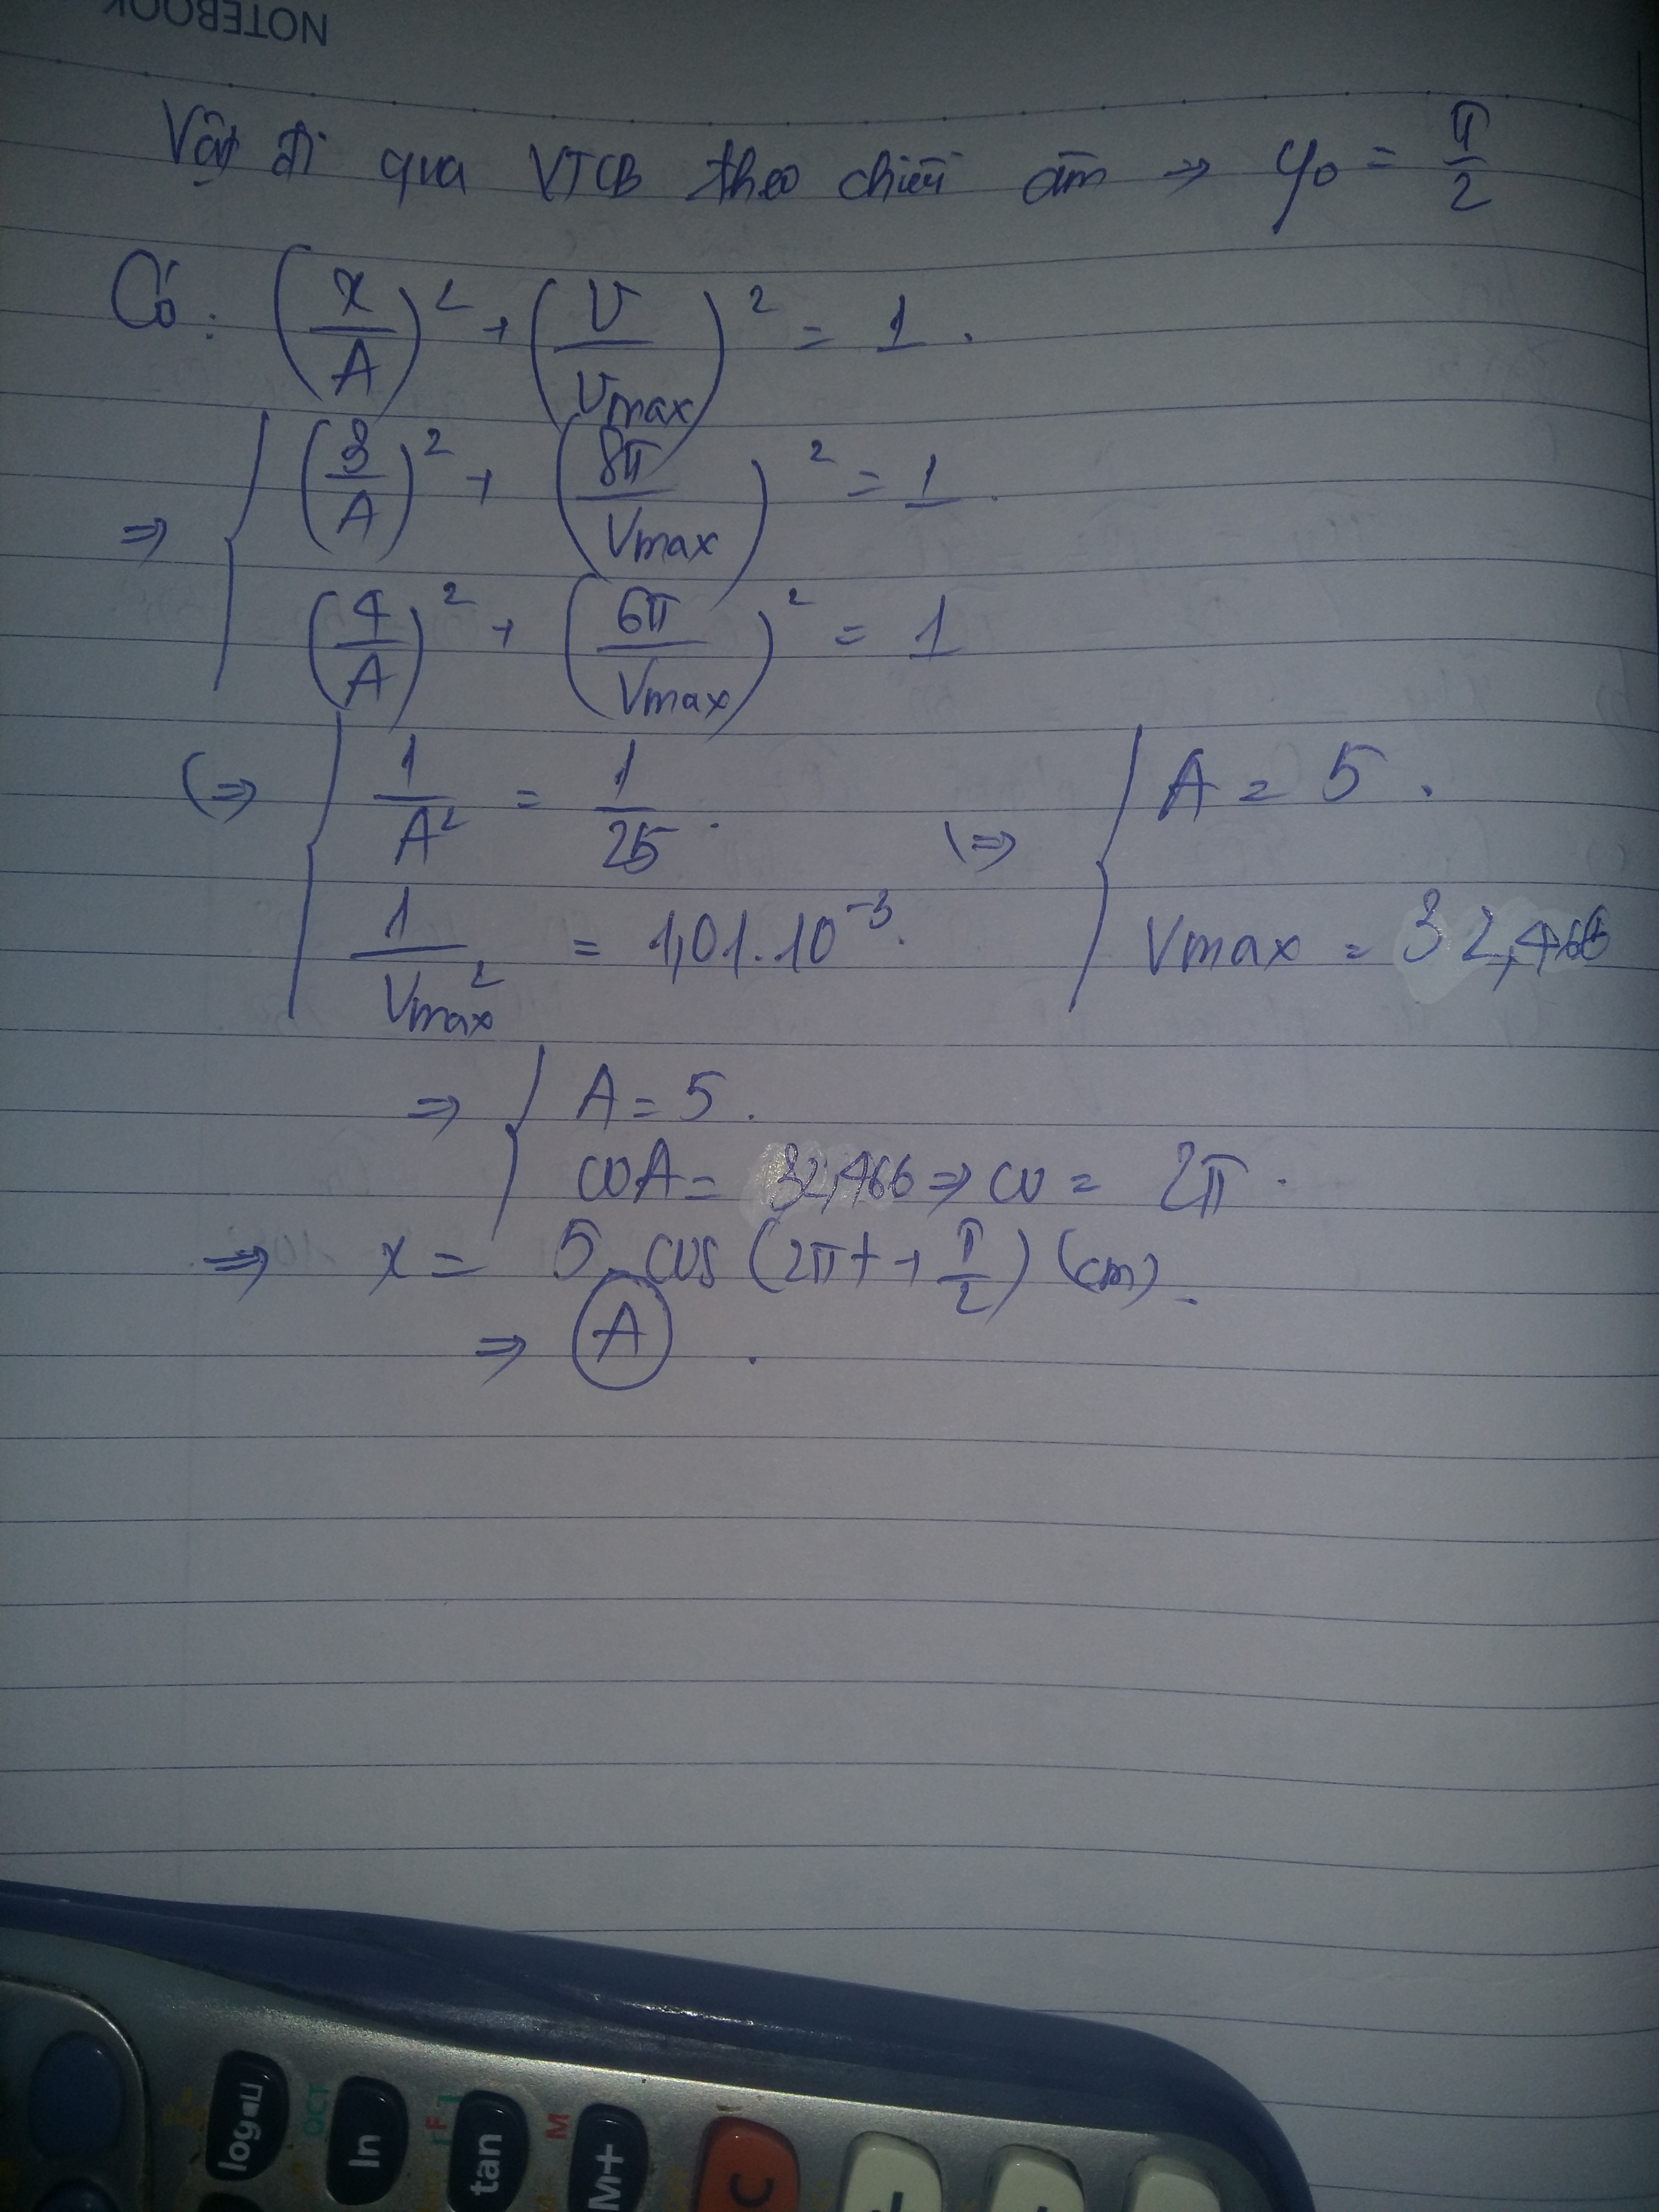 NOTEBOOK
Vật đi qua VTCB theo chiều âm ⇒ φ₀ = π/2
Có: (x/A)² + (v/vmax)² = 1.
⇒ { (3/A)² + (8π/Vmax)² = 1.
(4/A)² + (6π/Vmax)² = 1
(⇒ { 1/A² = 1/25. (⇒ { A = 5.
1/Vmax² = 1,01.10⁻³. Vmax = 32,466
⇒ { A = 5.
ωA = 32,466 ⇒ ω = 2π.
⇒ x = 5 cos (2πt + π/2) (cm).
⇒ A.
log ln tan M+ C
OCT F M